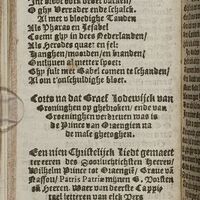 O ghy Verrader ende schalck.
Al met u bloedighe Tanden
Als Pharao en Jesabel
Coemt ghy in dees Nederlanden/
Als Herodes quaet en fel:
Hanghen/moorden/in banden/
u snel
Ghy sult met Babel comen te schanden/
Al om t'onschuldighe bloet.
Coets na dat Graef Lodewijck van
Groeninghen op ghebroken/ ende van
Groeninghen verdreven was is
de Prince van Oraengien na
de mase ghetoghen.
Een nieu Christelijck Liedt gemaect
ter eeren des Doorluchtichsten Heeren/
Wilhelm Prince tot Oraengië/ Graeve vā
Nassou/ Patris Patriæ mijnen G. Vorsten
eñ Heeren. Waer van deerste Cappi-
tael letteren van elck Vers